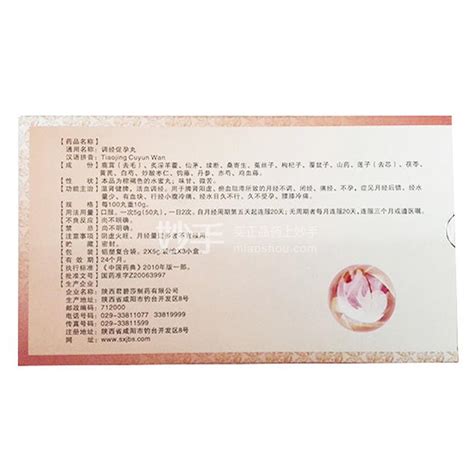 【药品名称】
通用名称：调经促孕丸
汉语拼音：Tiaojing Cuyun Wan
【成　　份】鹿茸（去毛）、炙淫羊藿、仙茅、续断、桑寄生、菟丝子、枸杞子、覆盆子、山药、莲子（去芯）、茯苓、
黄芪、白芍、炒酸枣仁、钩藤、丹参、赤芍、鸡血藤。
【性　　状】本品为棕褐色的水蜜丸；味甘、微苦。
【功能主治】温肾健脾，活血调经。用于脾肾阳虚、瘀血阻滞所致的月经不调、闭经、痛经、不孕，症见月经后错、经水
量少、有血块、行经小腹冷痛、经水日久不行、久不受孕、腰膝冷痛。
【规　　格】每100丸重10g。
【用法用量】口服，一次5g（50丸），一日2次，自月经周期第五天起连服20天；无周期者每月连服20天，连服三个月或遵医嘱。
【不良反应】尚不明确。
【禁　　忌】尚不明确。
【注意事项】阴虚火旺、月经量过多者不宜服用。
【贮　　藏】密封。
【包　　装】铝塑复合袋，2X5g/袋X3小盒
【有 效 期】24个月。
【执行标准】《中国药典》2010年版一部。
【批准文号】国药准字Z20063997
【生产企业】
企业名称：陕西君碧莎制药有限公司
生产地址：陕西省咸阳市钓台开发区8号
邮政编码：712000
电话号码：029-33811077　33819999
传真号码：029-33811599
注册地址：陕西省咸阳市钓台开发区8号
网　　址：www.sxjbs.com
妙手
买正品药上妙手
miaoshou.com